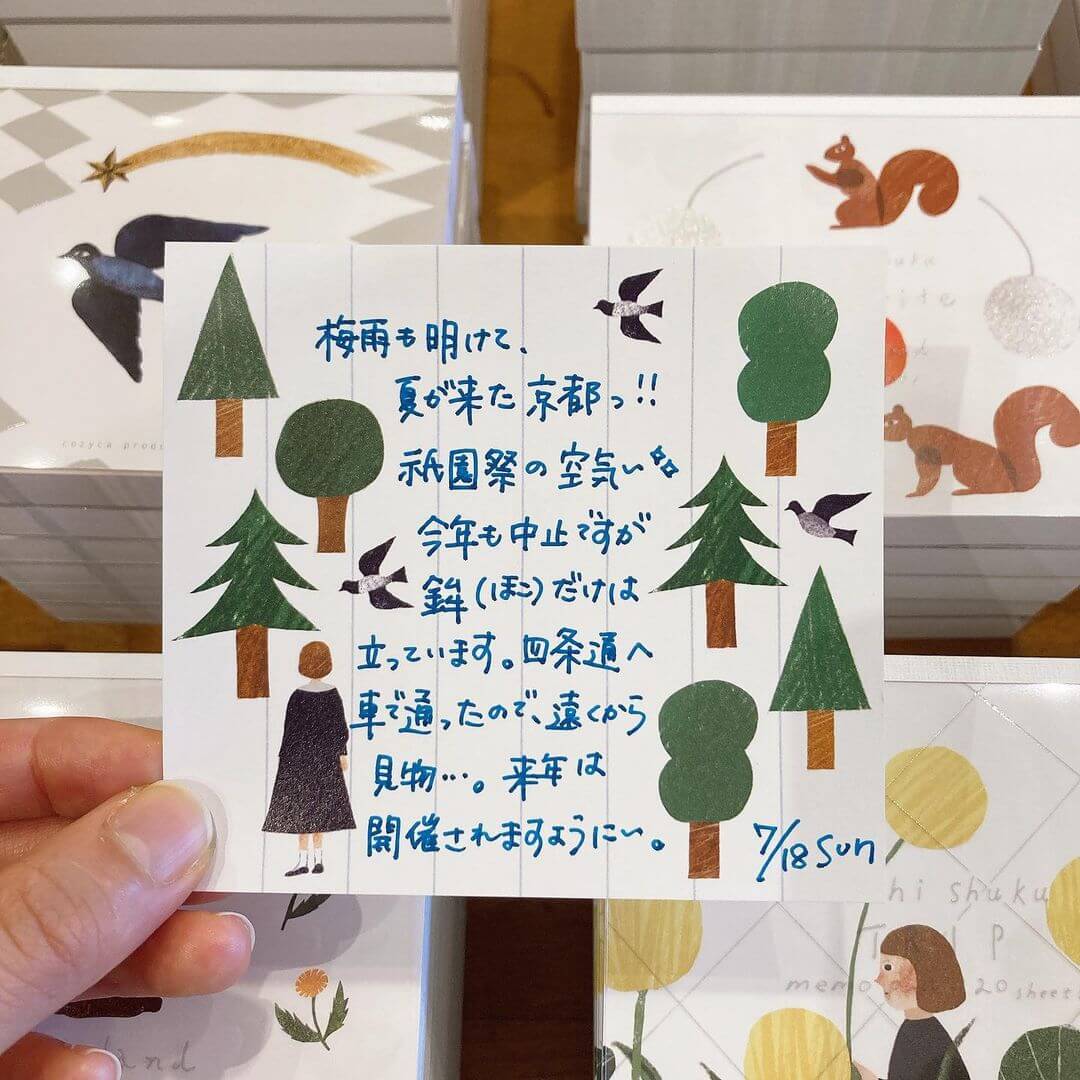 梅雨も明けて、
夏が来た京都っ!!
祇園祭の空気い
今年も中止ですが
鉾(ほこ)だけは
立っています。四条通へ
車で通ったので、遠くから
見物…。来年は
開催されますようにい。
7/18 Sun
cozyca
shuku
TRIP
20 sheets